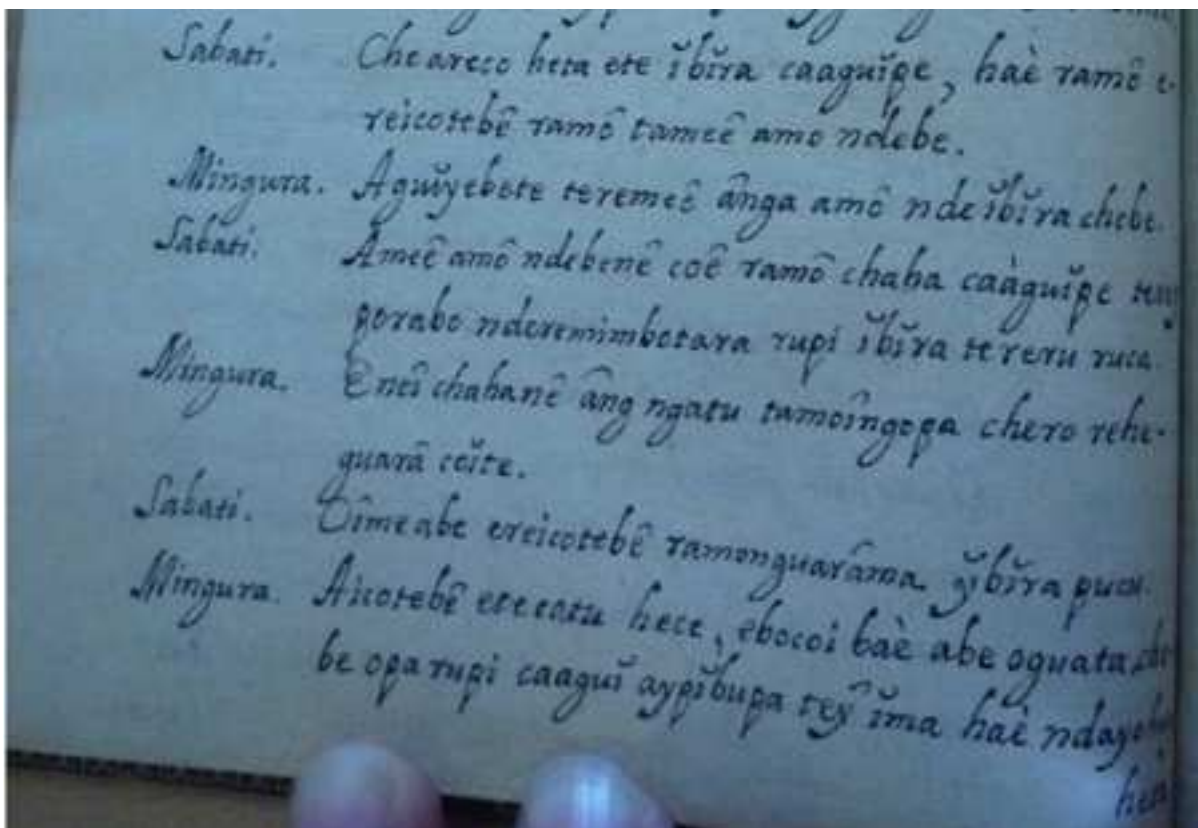 Sabati. Che areco heta ete ĭbĭra caaguĭpe, haè ramô e-
reicotebê ramô tameê amo ndebe.
Mingura. Aguĭyebete teremeê ânga amô nde ĭbĭra chebe.
Sabati. Ameê amô ndebenê coê ramô chaha caàguĭpe
porabo nderemimbotara rupi ĭbĭra tereru ruca.
Mingura. Eneî chahanê âng ngatu tamoîngopa chero rehe-
guarâ coĭte.
Sabati. Oîmeabe ereicotebê ramonguarâma ĭbĭra pucu.
Mingura. Aicotebê etecatu hece, ebocoi baè abe oguata
be opa rupi caaguĭ aypĭbupa teỹ ĭma haè